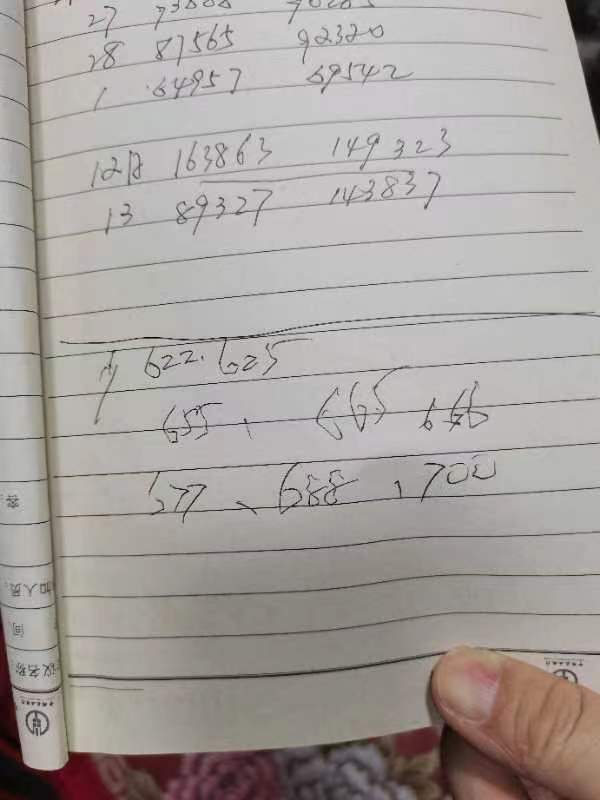 27 73808 78285
28 87565 92320
1 64957 69542
12月 163863 149323
13 89327 143837
622.625
655、665 666
677、688、700